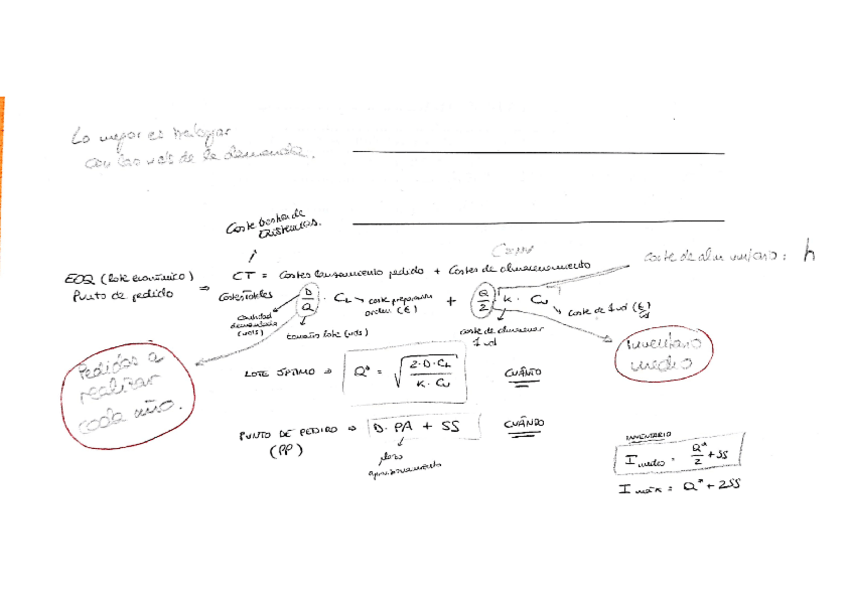 Lo mejor es trabajar
con las uds de la demanda.
Coste Gestion de
Existencias.
Coste de alm unitario: h
EOQ (lote económico)
Punto de pedido ⇒ CT = Costes lanzamiento pedido + Costes de almacenamiento
Costes totales D/Q · CL → coste preparación orden (€) + Q/2 · K · Cu → coste de 1 ud (€/ud)
cantidad
demandada
(uds)
tamaño lote (uds)
coste de almacenar
1 ud
Pedidos a
realizar
cada año.
Inventario
medio
LOTE ÓPTIMO ⇒ Q* = √(2·D·CL / K·Cu) CUÁNTO
PUNTO DE PEDIDO ⇒ D·PA + SS CUÁNDO
(PP)
plazo
aprovisionamiento
INVENTARIO
I medio = Q*/2 + SS
I máx = Q* + 2SS